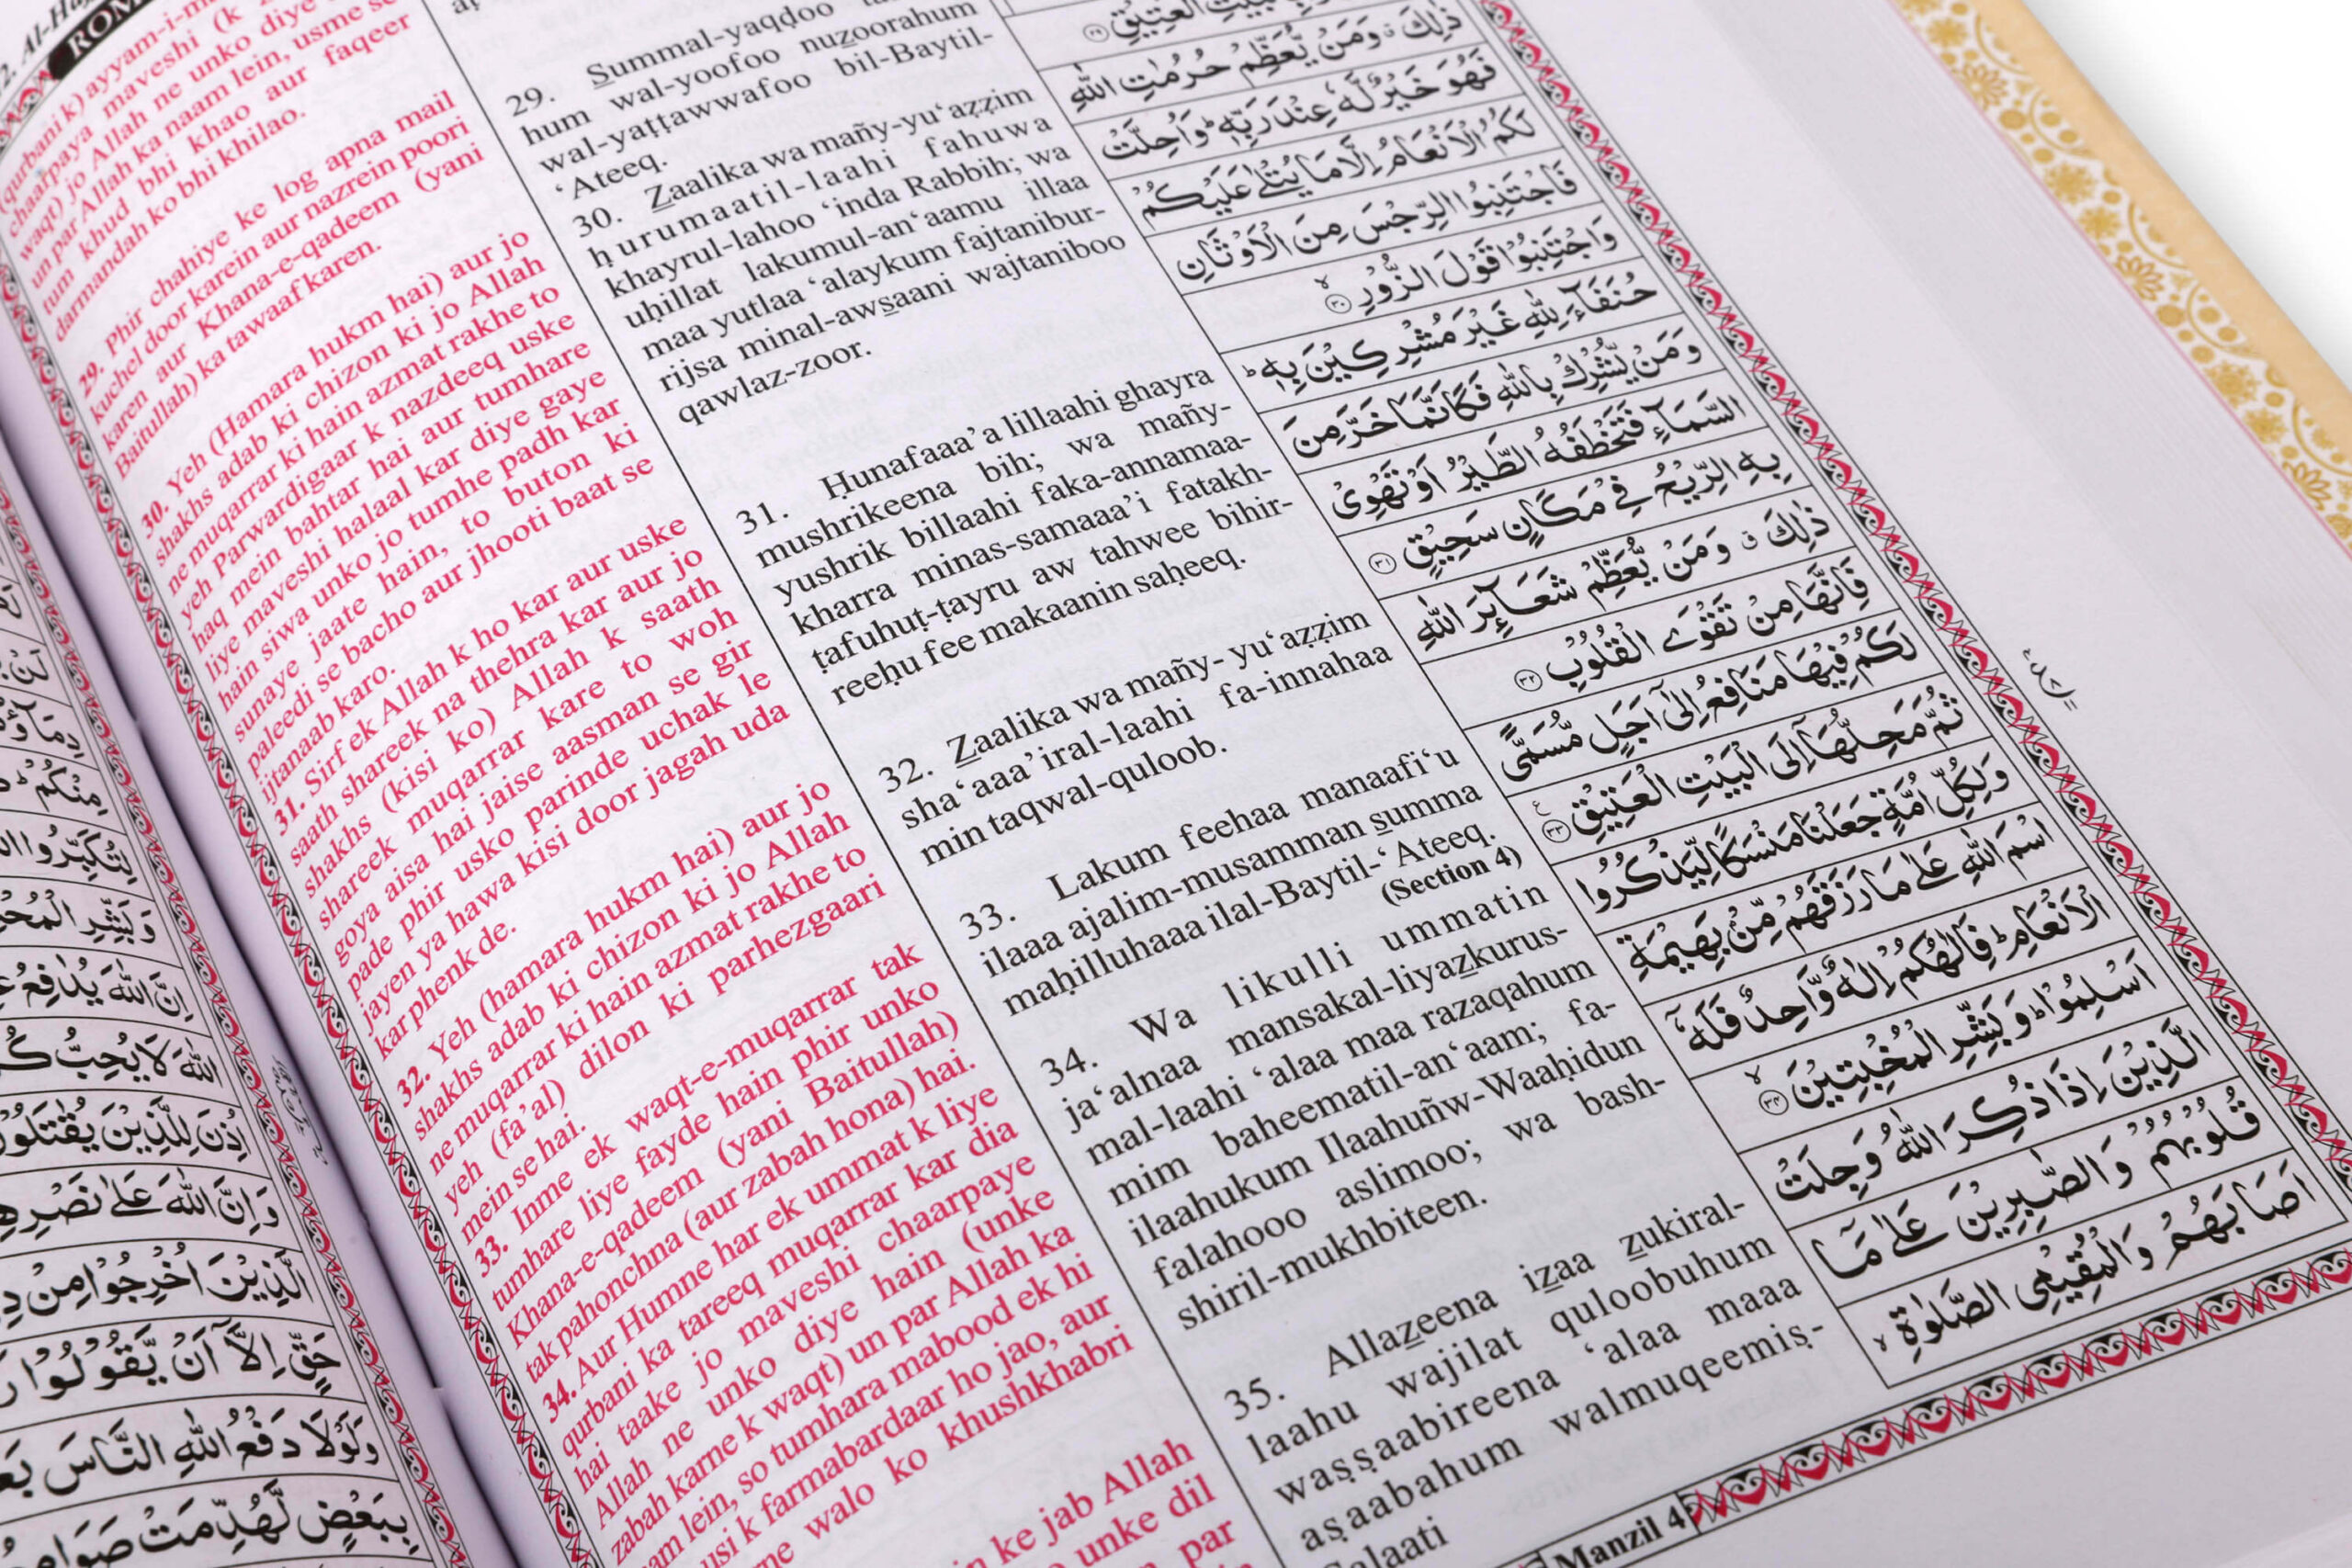 ROM
(qurbani k) ayyam-i-m
chaarpaya maveshi (k
waqt) jo Allah ne unko diye
un par Allah ka naam lein, usme se
tum khud bhi khao aur faqeer
darmandah ko bhi khilao.
29. Phir chahiye ke log apna mail
kuchel door karein aur nazrein poori
karen aur Khana-e-qadeem (yani
Baitullah) ka tawaaf karen.
30. Yeh (Hamara hukm hai) aur jo
shakhs adab ki chizon ki jo Allah
ne muqarrar ki hain azmat rakhe to
yeh Parwardigaar k nazdeeq uske
haq mein bahtar hai aur tumhare
liye maveshi halaal kar diye gaye
hain siwa unko jo tumhe padh kar
sunaye jaate hain, to buton ki
paleedi se bacho aur jhooti baat se
ijtanaab karo.
31. Sirf ek Allah k ho kar aur uske
saath shareek na thehra kar aur jo
shakhs (kisi ko) Allah k saath
shareek muqarrar kare to woh
goya aisa hai jaise aasman se gir
pade phir usko parinde uchak le
jayen ya hawa kisi door jagah uda
kar phenk de.
32. Yeh (hamara hukm hai) aur jo
shakhs adab ki chizon ki jo Allah
ne muqarrar ki hain azmat rakhe to
yeh (fa'al) dilon ki parhezgaari
mein se hai.
33. Inme ek waqt-e-muqarrar tak
tumhare liye fayde hain phir unko
Khana-e-qadeem (yani Baitullah)
tak pahonchna (aur zabah hona) hai.
34. Aur Humne har ek ummat k liye
qurbani ka tareeq muqarrar kar dia
hai taake jo maveshi chaarpaye
Allah ne unko diye hain (unke
zabah karne k waqt) un par Allah ka
am lein, so tumhara mabood ek hi
usi k farmabardaar ho jao, aur
ne walo ko khushkhabri
in ke jab Allah
unke dil
par
29. S̲ummal-yaqḍoo
hum wal-yoofoo nuz̲oorahum
wal-yaṭṭawwafoo bil-Baytil-
‘Ateeq.
30. Z̲aalika wa mañy-yu‘aẓẓim
ḥurumaatil-laahi fahuwa
khayrul-lahoo ‘inda Rabbih; wa
uḥillat lakumul-an‘aamu illaa
maa yutlaa ‘alaykum fajtanibur-
rijsa minal-aws̲aani wajtaniboo
qawlaz-zoor.
31. Ḥunafaaa’a lillaahi ghayra
mushrikeena bih; wa mañy-
yushrik billaahi faka-annamaa-
kharra minas-samaaa’i fatakh-
ṭafuhuṭ-ṭayru aw tahwee bihir-
reeḥu fee makaanin saḥeeq.
32. Z̲aalika wa mañy- yu‘aẓẓim
sha‘aaa’iral-laahi fa-innahaa
min taqwal-quloob.
33. Lakum feehaa manaafi‘u
ilaaa ajalim-musamman s̲umma
maḥilluhaaa ilal-Baytil-‘Ateeq.
(Section 4)
34. Wa likulli ummatin
ja‘alnaa mansakal-liyaz̲kurus-
mal-laahi ‘alaa maa razaqahum
mim baheematil-an‘aam; fa-
ilaahukum Ilaahuñw-Waaḥidun
falahooo aslimoo; wa bash-
shiril-mukhbiteen.
35. Allaz̲eena iz̲aa z̲ukiral-
laahu wajilat quloobuhum
waṣṣaabireena ‘alaa maaa
aṣaabahum walmuqeemiṣ-
Ṣalaati
ذٰلِكَ ۗ وَمَنْ يُّعَظِّمْ حُرُمٰتِ اللّٰهِ
فَهُوَ خَيْرٌ لَّهٗ عِنْدَ رَبِّهٖ ؕ وَاُحِلَّتْ
لَكُمُ الْاَنْعَامُ اِلَّا مَا يُتْلٰى عَلَيْكُمْ
فَاجْتَنِبُوا الرِّجْسَ مِنَ الْاَوْثَانِ
وَاجْتَنِبُوْا قَوْلَ الزُّوْرِ ۙ ﴿۳۰﴾
حُنَفَآءَ لِلّٰهِ غَيْرَ مُشْرِكِيْنَ بِهٖ ؕ
وَمَنْ يُّشْرِكْ بِاللّٰهِ فَكَاَنَّمَا خَرَّ مِنَ
السَّمَآءِ فَتَخْطَفُهُ الطَّيْرُ اَوْ تَهْوِيْ
بِهِ الرِّيْحُ فِيْ مَكَانٍ سَحِيْقٍ ﴿۳۱﴾
ذٰلِكَ ۗ وَمَنْ يُّعَظِّمْ شَعَآئِرَ اللّٰهِ
فَاِنَّهَا مِنْ تَقْوَى الْقُلُوْبِ ﴿۳۲﴾
لَكُمْ فِيْهَا مَنَافِعُ اِلٰٓى اَجَلٍ مُّسَمًّى
ثُمَّ مَحِلُّهَاۤ اِلَى الْبَيْتِ الْعَتِيْقِ ﴿۳۳﴾ ع
وَلِكُلِّ اُمَّةٍ جَعَلْنَا مَنْسَكًا لِّيَذْكُرُوا
اسْمَ اللّٰهِ عَلٰى مَا رَزَقَهُمْ مِّنْۢ بَهِيْمَةِ
الْاَنْعَامِ ؕ فَاِلٰهُكُمْ اِلٰهٌ وَّاحِدٌ فَلَهٗۤ
اَسْلِمُوْا ؕ وَبَشِّرِ الْمُخْبِتِيْنَ ۙ ﴿۳۴﴾
الَّذِيْنَ اِذَا ذُكِرَ اللّٰهُ وَجِلَتْ
قُلُوْبُهُمْ وَالصّٰبِرِيْنَ عَلٰى مَاۤ
اَصَابَهُمْ وَالْمُقِيْمِي الصَّلٰوةِ ۙ
Manzil 4
مِنْكُمْ
لِتُكَبِّرُوا
وَبَشِّرِ الْمُحْ
اِنَّ اللّٰهَ يُدٰفِعُ
اللّٰهَ لَا يُحِبُّ كُ
اُذِنَ لِلَّذِيْنَ يُقٰتَلُوْ
وَاِنَّ اللّٰهَ عَلٰى نَصْرِهِ
الَّذِيْنَ اُخْرِجُوْا مِنْ دِ
حَقٍّ اِلَّاۤ اَنْ يَّقُوْلُوْا رَ
وَلَوْلَا دَفْعُ اللّٰهِ النَّاسَ بَعْ
بِبَعْضٍ لَّهُدِّمَتْ صَوَامِعُ